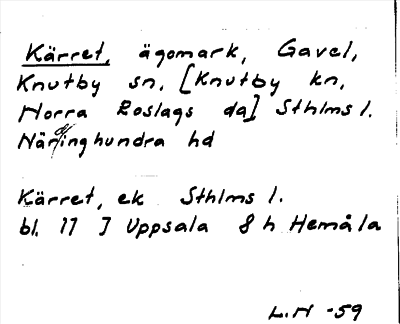 Kärret, ägomark, Gavel,
Knutby sn, [Knutby kn,
Norra Roslags da] Sthlms l.
Närdinghundra hd
Kärret, ek Sthlms l.
bl. 11 I Uppsala 8 h Hemåla
L.N -59